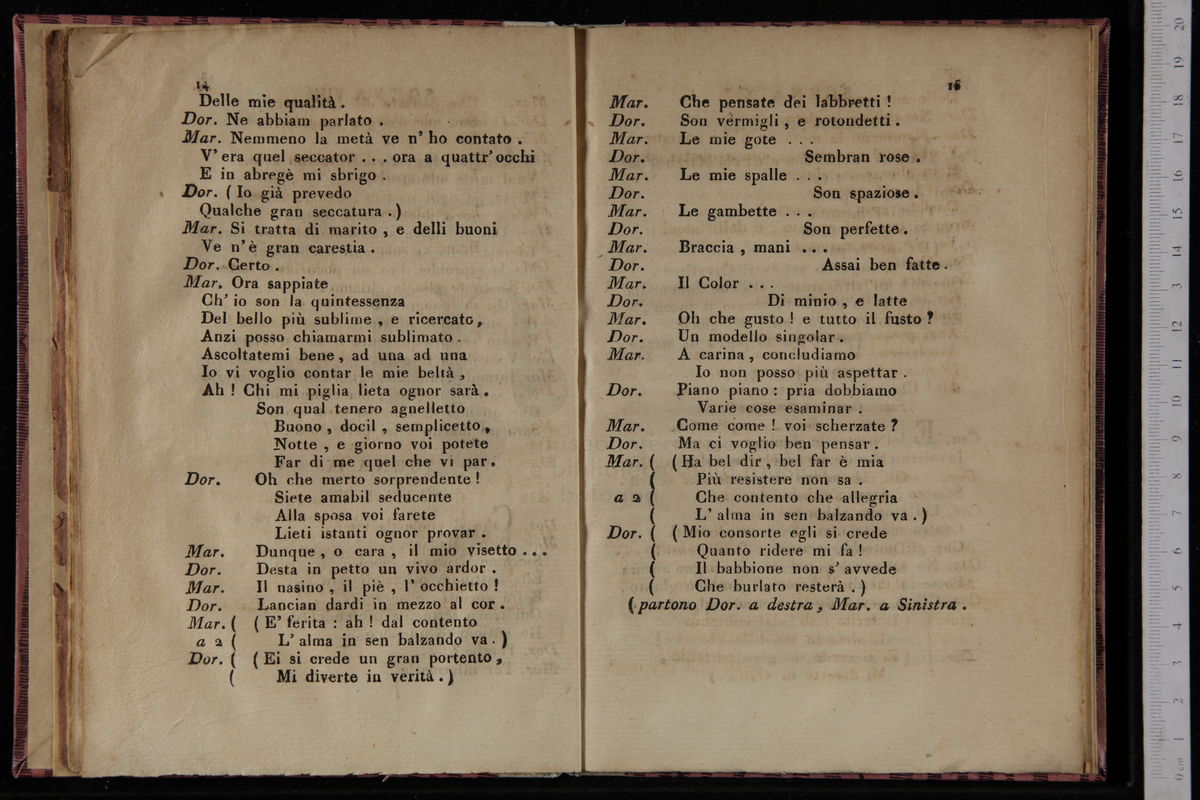 14
Delle mie qualità .
Dor. Ne abbiam parlato .
Mar. Nemmeno la metà ve n' ho contato .
V' era quel seccator . . . ora a quattr' occhi
E in abregè mi sbrigo .
Dor. ( Io già prevedo
Qualche gran seccatura . )
Mar. Si tratta di marito , e delli buoni
Ve n' è gran carestia .
Dor. Certo .
Mar. Ora sappiate
Ch' io son la quintessenza
Del bello più sublime , e ricercato ,
Anzi posso chiamarmi sublimato .
Ascoltatemi bene , ad una ad una
Io vi voglio contar le mie beltà ,
Ah ! Chi mi piglia lieta ognor sarà .
Son qual tenero agnelletto
Buono , docil , semplicetto ,
Notte , e giorno voi potete
Far di me quel che vi par .
Dor. Oh che merto sorprendente !
Siete amabil seducente
Alla sposa voi farete
Lieti istanti ognor provar .
Mar. Dunque , o cara , il mio visetto . . .
Dor. Desta in petto un vivo ardor .
Mar. Il nasino , il piè , l' occhietto !
Dor. Lancian dardi in mezzo al cor .
Mar. ( ( E' ferita : ah ! dal contento
a 2 ( L' alma in sen balzando va . )
Dor. ( ( Ei si crede un gran portento ,
( Mi diverte in verità . )
15
Mar. Che pensate dei labbretti !
Dor. Son vermigli , e rotondetti .
Mar. Le mie gote . . .
Dor. Sembran rose .
Mar. Le mie spalle . . .
Dor. Son spaziose .
Mar. Le gambette . . .
Dor. Son perfette .
Mar. Braccia , mani . . .
Dor. Assai ben fatte .
Mar. Il Color . . .
Dor. Di minio , e latte
Mar. Oh che gusto ! e tutto il fusto ?
Dor. Un modello singolar .
Mar. A carina , concludiamo
Io non posso più aspettar .
Dor. Piano piano : pria dobbiamo
Varie cose esaminar .
Mar. Come come ! voi scherzate ?
Dor. Ma ci voglio ben pensar .
Mar. ( ( Ha bel dir , bel far è mia
( Più resistere non sa .
a 2 ( Che contento che allegria
( L' alma in sen balzando va . )
Dor. ( ( Mio consorte egli si crede
( Quanto ridere mi fa !
( Il babbione non s' avvede
( Che burlato resterà . )
( partono Dor. a destra , Mar. a Sinistra .